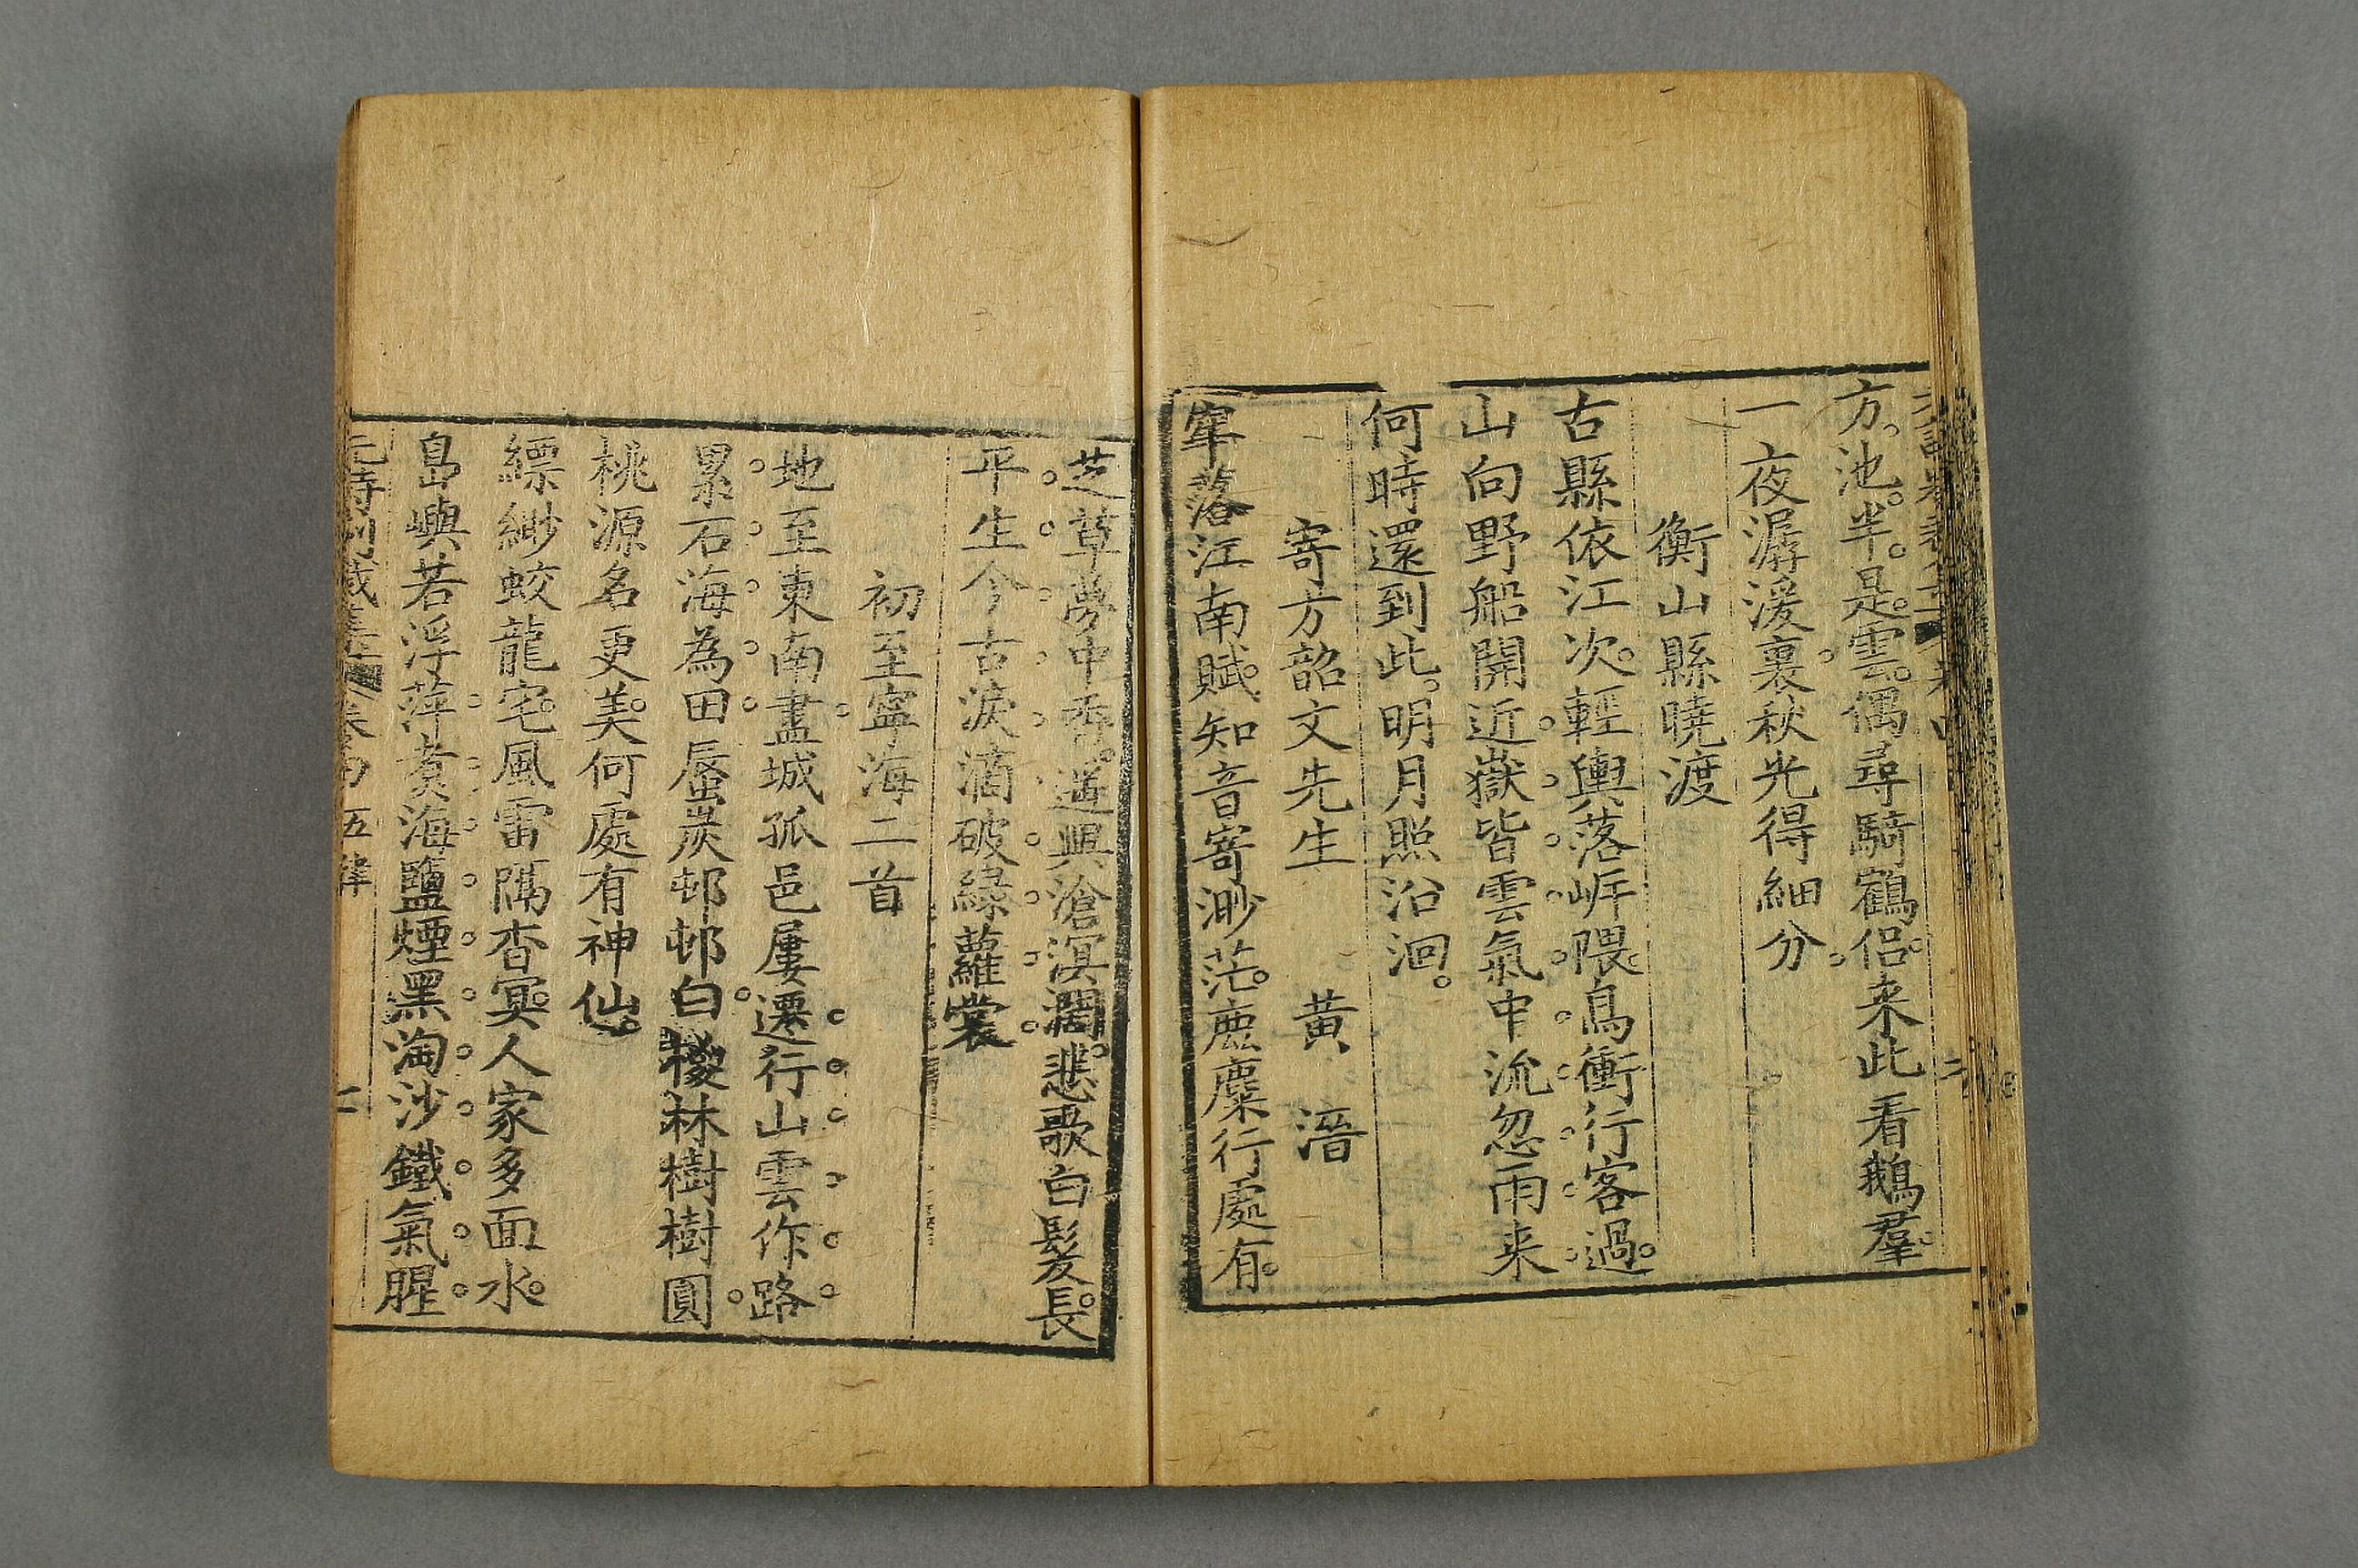 方池半是雲。偶尋騎鶴侶。来此看鵝羣。
一夜潺湲裏秋光得細分
衡山縣曉渡
古縣依江次。輕輿落岸隈。鳥衝行客過。
山向野船開近嶽皆雲氣中流忽雨来
何時還到此。明月照沿洄。
寄方韶文先生　黄溍
牢落江南賦。知音寄渺茫。鹿麋行處有。
芝草夢中香。遣興滄溟濶。悲歌白髮長。
平生今古淚滴破綠蘿裳
初至寧海二首
地至東南盡城孤邑屢遷行山雲作路
累石海為田蜃炭邨邨白椶林樹樹圓
桃源名更美。何處有神仙。
縹緲蛟龍宅。風雷隔杳冥。人家多面水。
島嶼若浮萍煮海鹽煙黑淘沙鐵氣腥
卷四 五律